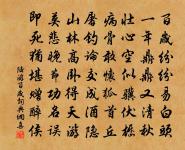 百歲紛紛易白頭
一年鼎鼎又清秋
壯心空似驥伏櫪
病骨敢懷狐首丘
屠釣論交成酒隱
山林高卧得天游
莫悲晚節功名誤
即死猶堪贈醉侯
陸游百歲詞典網